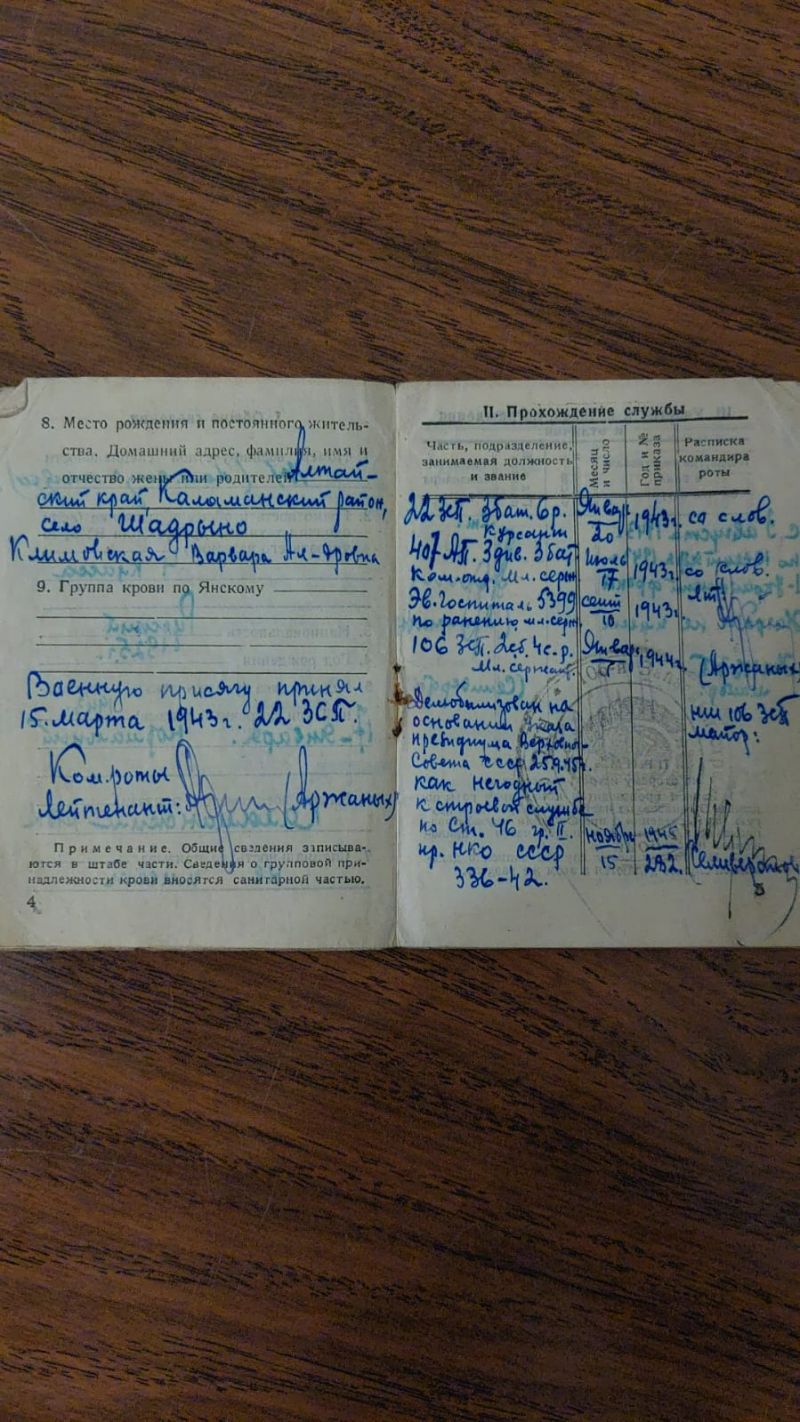 8. Место рождения и постоянного житель-
ства. Домашний адрес, фамилия, имя и
отчество жены или родителей Алтай-
ский край, Каламанский район,
село Шадрыно
Климовская Варвара Ал-дровна
9. Группа крови по Янскому
Военную присягу принял
15. марта 1943г. 22 ЗСП.
Ком. роты
Лейтенант: (Аржаных)
Примечание. Общие сведения записыва-
ются в штабе части. Сведения о групповой при-
надлежности крови вносятся санитарной частью.
4
II. Прохождение службы
Часть, подразделение, занимаемая должность и звание
Месяц и число
Год и № приказа
Расписка командира роты
22 ЗСП. 3бат. 6р. Январ 1943г. со слов.
Курсант 20
407 АП. 3 див. 3 бат Июль 1943г. со слов.
Ком. отд. Мл. серж 17
Эв. Госпиталь 5399 сент 1943г.
по ранению мл. серж 10
106 ЗСП. 2сб. 4с. р. Январ. 1944г.
Мл. сержант. (Аржаных)
Демобилизован на
основании Указа НШ 106 ЗСП
Президиума Верховно- майор:
Совета СССР 25.9.45г.
как негодной
к строевой службе
по Ст. 46 гр. II. ноябрь 1945
пр. НКО СССР 15 282.
336-42.